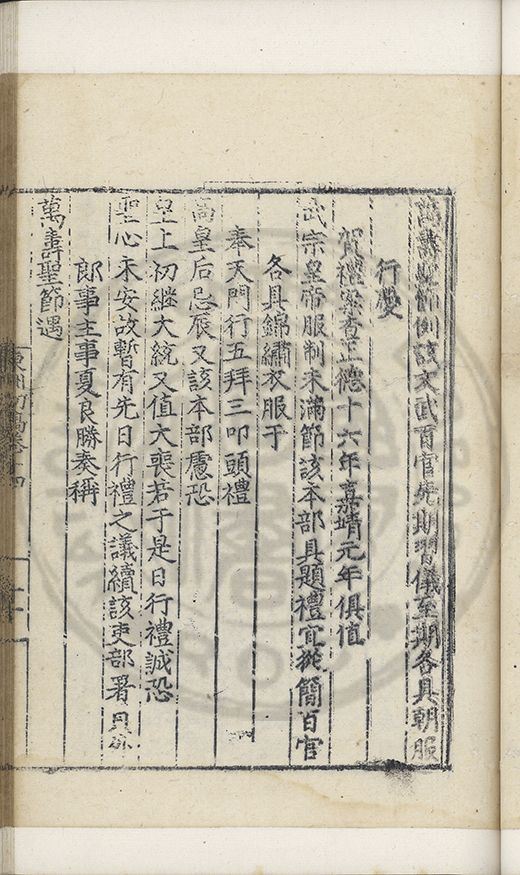 萬壽聖節例該文武百官先期習儀至期各具朝服
行慶
賀禮案查正德十六年嘉靖元年俱值
武宗皇帝服制未滿節該本部具題禮宜從簡百官
各具錦繡衣服于
奉天門行五拜三叩頭禮
高皇后忌辰又該本部慮恐
皇上初繼大統又值大喪若于是日行禮誠恐
聖心未安故暫有先日行禮之議續該吏部署員外
郎事主事夏良勝奏稱
萬壽聖節遇
東洲初稿卷十四